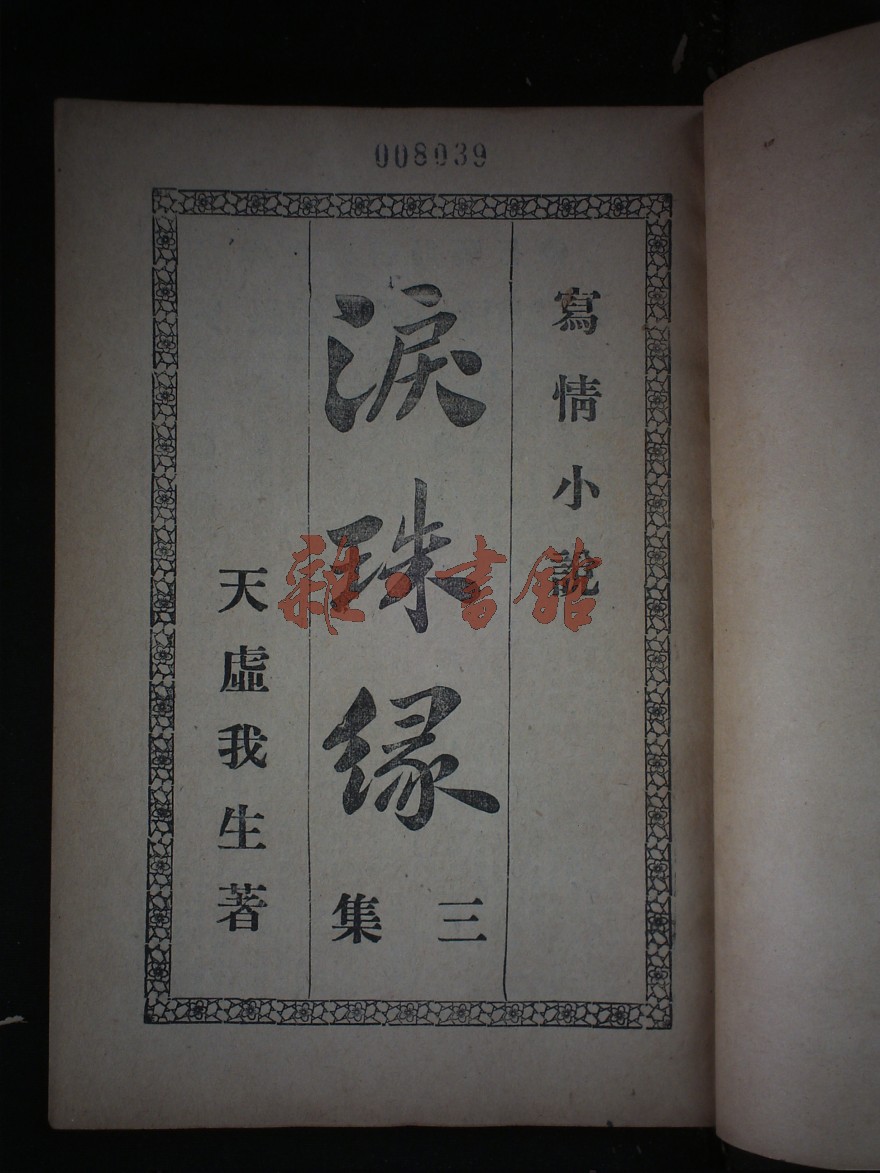 008039
寫情小說
淚珠緣
三集
天虛我生著
雜·書館